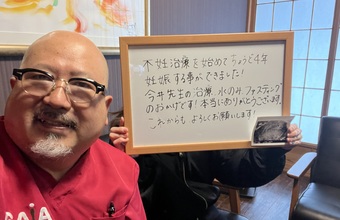 不妊治療を始めてちょうど4年
妊娠する事ができました!
今井先生の治療、水のみ、ファスティング
のおかげです!本当にありがとうございます
これからもよろしくお願いします!